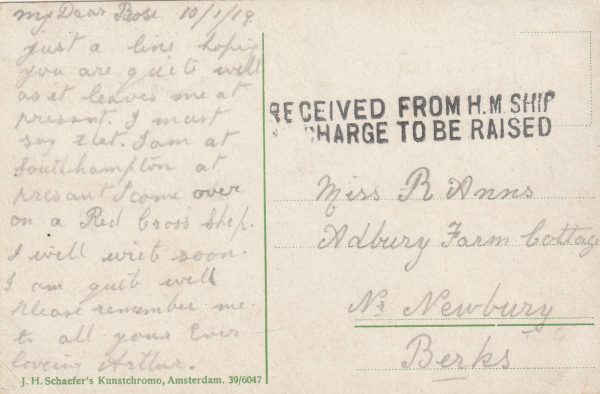 My Dear Rose 10/1/19
just a line hopig
you are quit well
as it leaves me at
present. I must
say that. I am at
Southhampton at
presant I come over
on a Red Cross Ship.
I will writ soon.
I am quit well
Please remember me
to all your Ever
loveing Arthur.
J. H. Schaefer's Kunstchromo, Amsterdam. 39/6047
RECEIVED FROM H.M. SHIP
CHARGE TO BE RAISED
Miss R Anns
Adbury Farm Cottage
Nr Newbury
Berks